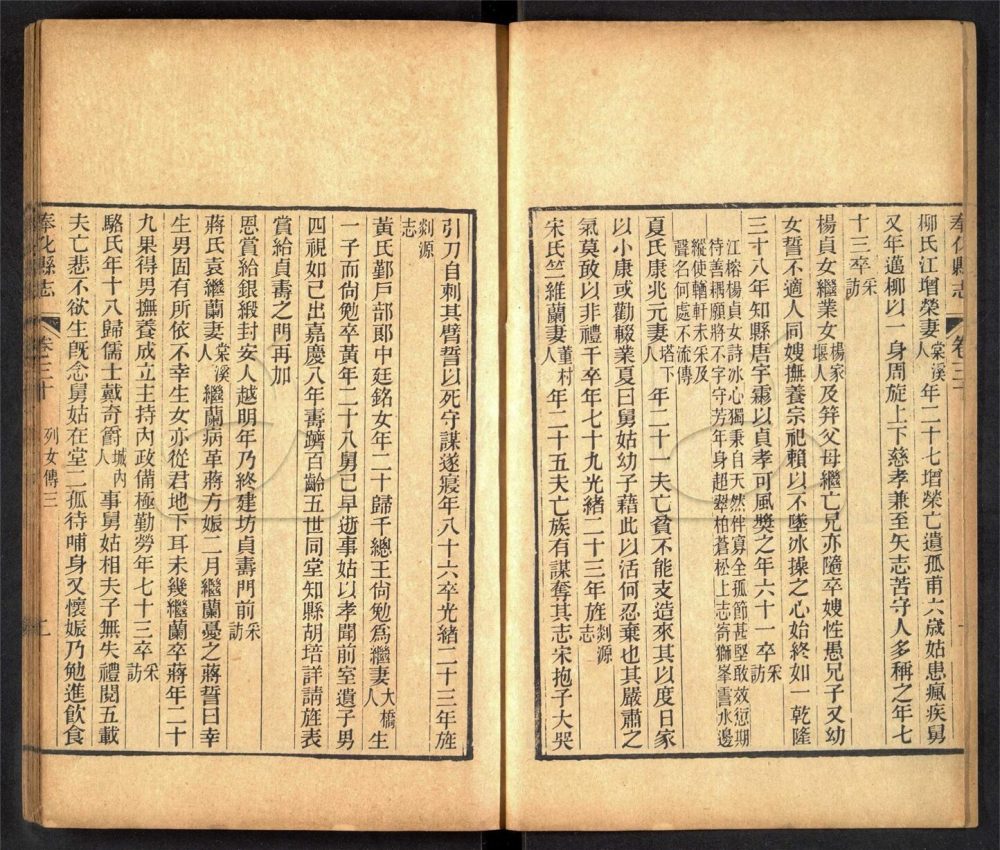 奉化縣志 卷三十
柳氏江增榮妻棠溪人年二十七增榮亡遺孤甫六歲姑患瘋疾舅
又年邁柳以一身周旋上下慈孝兼至矢志苦守人多稱之年七
十三卒采訪
楊貞女繼業女楊家堰人及笄父母繼亡兄亦隨卒嫂性愚兄子又幼
女誓不適人同嫂撫養宗祀賴以不墜冰操之心始終如一乾隆
三十八年知縣唐宇霖以貞孝可風獎之年六十一卒采訪
江榕楊貞女詩冰心獨秉自天然伴寡全孤節甚堅敢效愆期
待善耦願將不字守芳年身超翠柏蒼松上志寄獅峯雪水邊
縱使輶軒未采及
聲名何處不流傳
夏氏康兆元妻塔下人年二十一夫亡貧不能支造來其以度日家
以小康或勸輟業夏曰舅姑幼子藉此以活何忍棄也其嚴肅之
氣莫敢以非禮干卒年七十九光緒二十三年旌剡源志
宋氏竺維蘭妻董村人年二十五夫亡族有謀奪其志宋抱子大哭
引刀自刺其臂誓以死守謀遂寢年八十六卒光緒二十三年旌
剡源志
黃氏鄞戶部郎中廷銘女年二十歸千總王尙勉爲繼妻大橋人生
一子而尙勉卒黃年二十八舅已早逝事姑以孝聞前室遺子男
四視如己出嘉慶八年壽躋百齡五世同堂知縣胡培詳請旌表
賞給貞壽之門再加
恩賞給銀緞封安人越明年乃終建坊貞壽門前采訪
蔣氏袁繼蘭妻棠溪人繼蘭病革蔣方娠二月繼蘭憂之蔣誓曰幸
生男固有所依不幸生女亦從君地下耳未幾繼蘭卒蔣年二十
九果得男撫養成立主持內政備極勤勞年七十三卒采訪
駱氏年十八歸儒士戴奇爵城內人事舅姑相夫子無失禮閱五載
夫亡悲不欲生旣念舅姑在堂二孤待哺身又懷娠乃勉進飮食
奉化縣志 卷三十 列女傳三 上